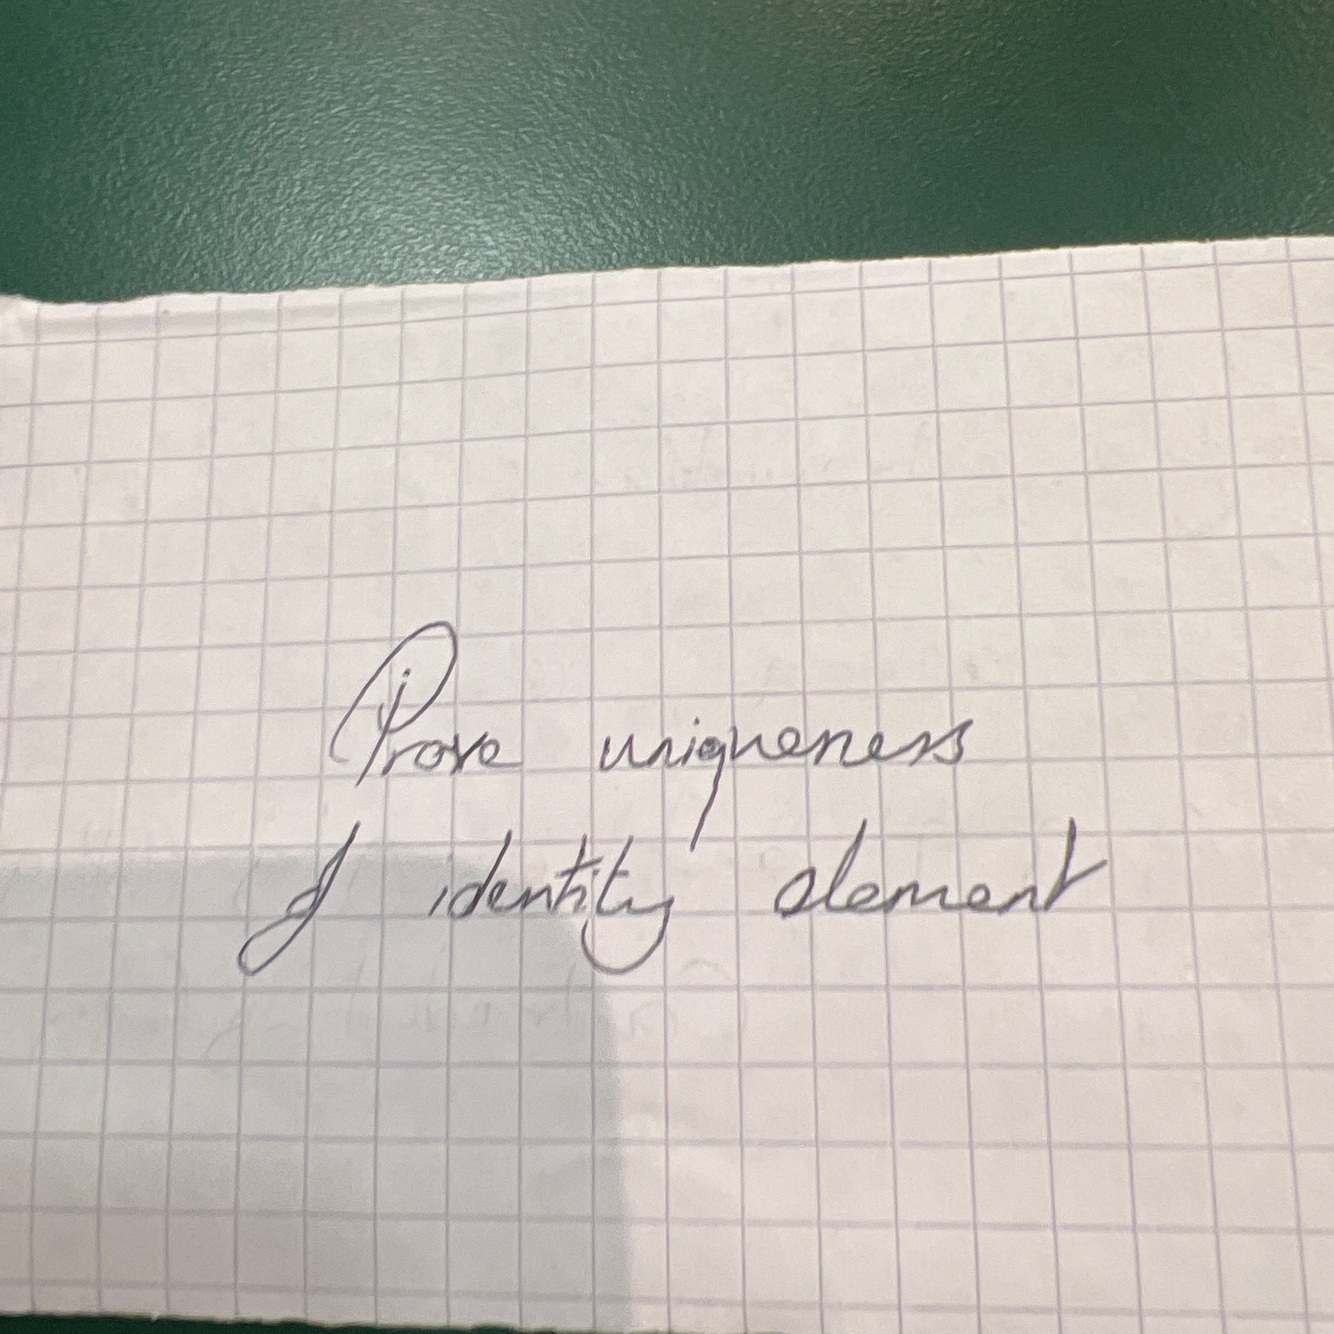 Prove uniqueness
of identity element